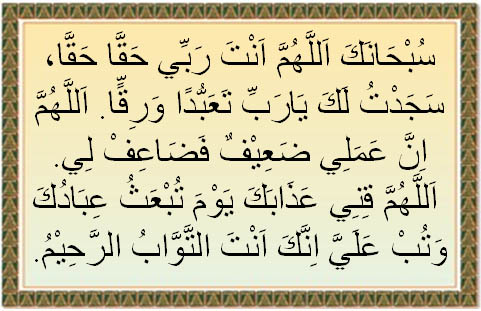 سُبْحَانَكَ اَللَّهُمَّ اَنْتَ رَبِّي حَقًّا حَقًّا،
سَجَدْتُ لَكَ يَارَبِّ تَعَبُّدًا وَرِقًّا. اَللَّهُمَّ
اِنَّ عَمَلِي ضَعِيْفٌ فَضَاعِفْ لِي.
اَللَّهُمَّ قِنِي عَذَابَكَ يَوْمَ تُبْعَثُ عِبَادُكَ
وَتُبْ عَلَيَّ اِنَّكَ اَنْتَ التَّوَّابُ الرَّحِيْمُ.